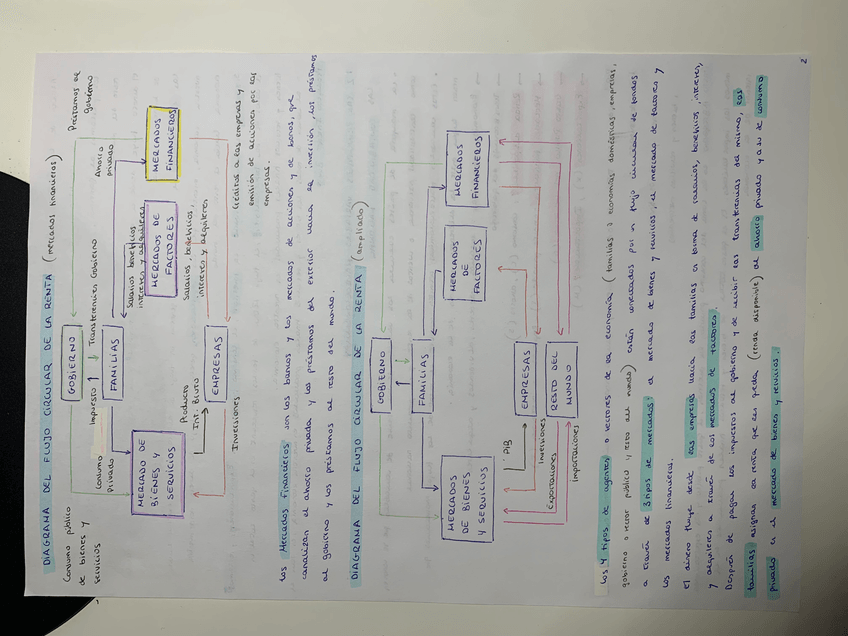 DIAGRAMA DEL FLUJO CIRCULAR DE LA RENTA (mercados financieros)
Consumo público
de bienes y
servicios
GOBIERNO
Préstamos al
gobierno
Impuesto
Transferencias Gobierno
Consumo
Privado
FAMILIAS
Ahorro
privado
MERCADO DE
BIENES Y
SERVICIOS
Salarios beneficios
intereses y alquileres
MERCADOS DE
FACTORES
MERCADOS
FINANCIEROS
Producto
Int. Bruto
Salarios, beneficios,
intereses y alquileres
EMPRESAS
Inversiones
Créditos a las empresas y
emisión de acciones por las
empresas.
Los Mercados Financieros son los bancos y los mercados de acciones y de bonos, que
canalizan el ahorro privado y los préstamos del exterior hacia la inversión, los préstamos
al gobierno y los préstamos al resto del mundo.
DIAGRAMA DEL FLUJO CIRCULAR DE LA RENTA (ampliado)
GOBIERNO
FAMILIAS
MERCADOS
DE BIENES
Y SERVICIOS
MERCADOS
DE
FACTORES
MERCADOS
FINANCIEROS
PIB
EMPRESAS
Inversiones
Exportaciones
RESTO DEL
MUNDO
importaciones
Los 4 tipos de agentes o sectores de la economía (familias o economías domésticas, empresas,
gobierno o sector público y resto del mundo) están conectados por un flujo circular de fondos
a través de 3 tipos de mercados: el mercado de bienes y servicios, el mercado de factores y
los mercados financieros.
El dinero fluye desde las empresas hacia las familias en forma de salarios, beneficios, intereses,
y alquileres a través de los mercados de factores.
Después de pagar los impuestos al gobierno y de recibir las transferencias del mismo, las
familias asignan la renta que les queda (renda disponible) al ahorro privado y al de consumo
privado en el mercado de bienes y servicios.
2